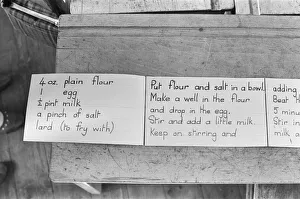 4 oz. plain flour
1 egg
½ pint milk
a pinch of salt
lard (to fry with)
Put flour and salt in a bowl.
Make a well in the flour
and drop in the egg.
Stir and add a little milk.
Keep on stirring and
adding
Beat
5 minu
Stir in
milk a